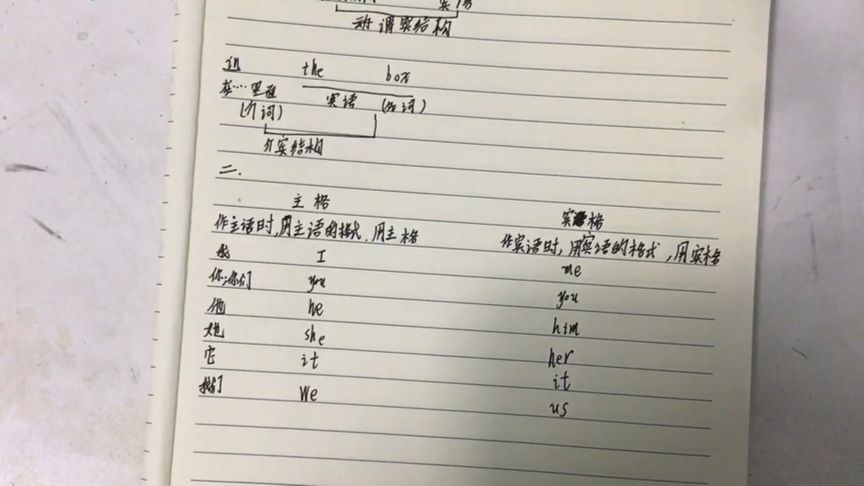 宾语
动谓宾结构
in the box
在…里面 宾语 (名词)
(介词)
介宾结构
二.
主格 宾格
作主语时,用主语的格式,用主格 作宾语时,用宾语的格式,用宾格
我 I me
你;你们 you you
他 he him
她 she her
它 it it
我们 We us